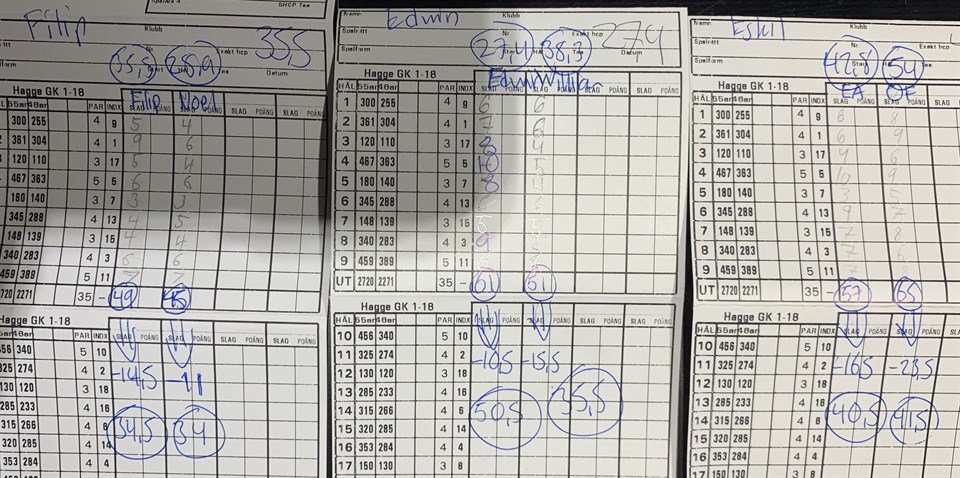 SHCP Tee
Namn Filip Klubb
Spelrätt Nr Exakt hcp 35,5
Spelform 35,5 28,9 Tee Datum
Hagge GK 1-18
HÅL 55ar 48ar PAR INDX SLAG POÄNG SLAG POÄNG SLAG POÄNG
Filip Noel
300 255 4 9 5 4
361 304 4 1 9 6
120 110 3 17 5 4
467 363 5 5 6 6
180 140 3 7 3
345 288 4 13 4 5
148 139 3 15 4 4
340 283 4 3 6 6
459 389 5 11 7 7
2720 2271 35 - 49 45
Hagge GK 1-18
55ar 48ar PAR INDX SLAG POÄNG SLAG POÄNG SLAG POÄNG
456 340 5 10
325 274 4 2 -14,5 -11
130 120 3 18
285 233 4 16
315 266 4 6 34,5 34
320 285 4 14
353 284 4 4
Namn Edwin Klubb
Spelrätt Nr Exakt hcp 27,4
Spelform 27,4 38,3 Tee Datum
Hagge GK 1-18
HÅL 55ar 48ar PAR INDX SLAG POÄNG SLAG POÄNG SLAG POÄNG
Edwin
1 300 255 4 9 6 6
2 361 304 4 1 7 6
3 120 110 3 17 8 4
4 467 363 5 5 10 5
5 180 140 3 7 8
6 345 288 4 13
7 148 139 3 15 5
8 340 283 4 3 9
9 459 389 5 11
UT 2720 2271 35 - 61 51
Hagge GK 1-18
HÅL 55ar 48ar PAR INDX SLAG POÄNG SLAG POÄNG SLAG POÄNG
10 456 340 5 10
11 325 274 4 2 -10,5 -15,5
12 130 120 3 18
13 285 233 4 16
14 315 266 4 6 50,5 35,5
15 320 285 4 14
16 353 284 4 4
17 150 130 3 8
Namn Eskil Klubb
Spelrätt Nr Exakt hcp
Spelform 42,8 54 Datum
Hagge GK 1-18
HÅL 55ar 48ar PAR INDX SLAG POÄNG SLAG POÄNG SLAG POÄNG
EA OE
1 300 255 4 9 6 8
2 361 304 4 1 6 9
3 120 110 3 17 4 6
4 467 363 5 5 10 9
5 180 140 3 7 3 5
6 345 288 4 13 9 7
7 148 139 3 15 7 8
8 340 283 4 3 7 7
9 459 389 5 11 6
UT 2720 2271 35 - 57 65
Hagge GK 1-18
HÅL 55ar 48ar PAR INDX SLAG POÄNG SLAG POÄNG SLAG POÄNG
10 456 340 5 10
11 325 274 4 2 -16,5 -23,5
12 130 120 3 18
13 285 233 4 16
14 315 266 4 6 40,5 41,5
15 320 285 4 14
16 353 284 4 4
17 150 130 3 8